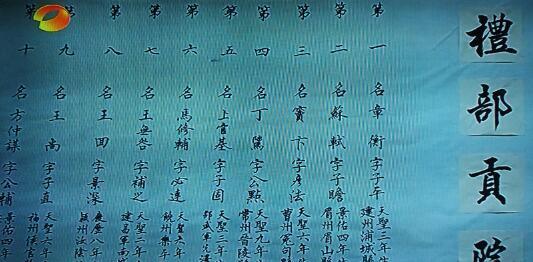 禮部貢院
第一名章衡字子平
天聖三年生
建州浦城縣
第二名蘇軾字子瞻
景佑四年生
眉州眉山縣
第三名竇卞字彥法
天聖六年
曹州冤句
第四名丁騭字公點
天聖九年
常州晉陵
第五名上官基字子固
天聖三年
邵武軍
第六名馬修輔字必達
天聖六年
饒州樂平
第七名王無咎字補之
天聖二年
建昌軍南
第八名王回字景深
慶歷八年
潁州汝陰
第九名王尚字子直
天聖
福州侯官
第十名方仲謀字公輔
景佑四年